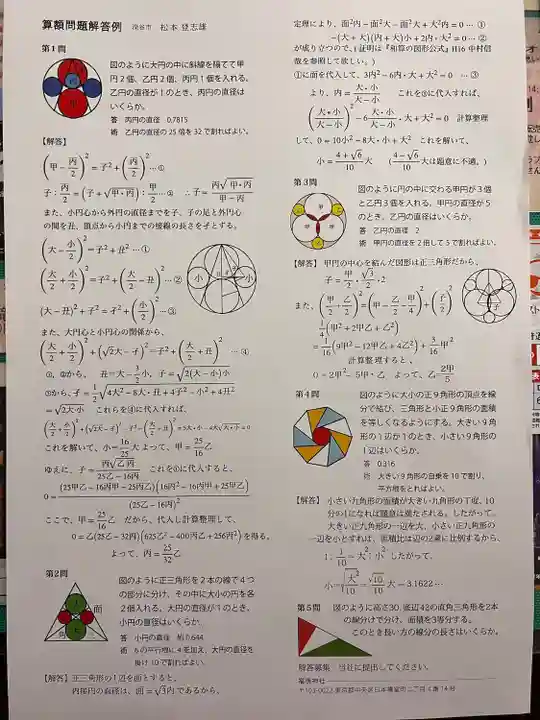 算額問題解答例 深谷市 松本登志雄
第1問
図のように大円の中に斜線を隔てて甲
円2個、乙円2個、丙円1個を入れる。
乙円の直径が1のとき、丙円の直径は
いくらか。
答 丙円の直径 0.7815
術 乙円の直径の25倍を32で割ればよい。
【解答】
(甲−丙/2)²=子²+(丙/2)² …①
子:丙/2=(子+√甲・丙):甲/2 …② ∴子=丙√甲・丙/甲−丙
また、小円心から外円の直径までを子、子の足と外円心
の間を丑、頂点から小円までの接線の長さを子とする。
(大−小/2)²=子²+丑² …①
(大/2+小/2)²=子²+(大/2−丑)² …②
(大−丑)²+子²=子²+(小/2)² …③
また、大円心と小円心の関係から、
(大/2+小/2)²+(√2大−子)²=子²+(大/2+丑)² …④
①、②から、 丑=大−3/2小、子=√2(大−小)小
③から、子=1/2√4大²−8大・丑+4子²−小²+4丑²
=√2大・小 これらを④に代入すれば、
これを解いて、小=16/25大 よって、甲=25/16乙
ゆえに、子=丙√乙丙/25乙−16丙 これを①に代入すると、
0=(25甲乙−16丙甲−25丙乙)(16丙²−16丙甲+25甲乙)/(25乙−16丙)²
ここで、甲=25/16乙 だから、代入し計算整理して、
0=乙(25乙−32丙)(625乙²−400丙乙+256丙²)を得る。
よって、丙=25/32乙
第2問
図のように正三角形を2本の線で4つ
の部分に分け、その中に大小の円を各
2個入れる。大円の直径が1のとき、
小円の直径はいくらか。
答 小円の直径 約0.644
術 6の平方根に4を加え、大円の直径を
掛け10で割ればよい。
面
【解答】 正三角形の1辺を面とすると、
内接円の直径は、面=√3内であるから、
定理により、面²内−面²大−面²大+大²内=0 … ①
−(大+大)(内+大)小+2内・大²=0 … ②
が成り立つので、(証明は『和算の図形公式』H16 中村信
弥を参照して欲しい。)
①に面を代入して、3内²−6内・大+大²=0 …③
より、内=大・小/大−小 これを③に代入すれば、
(大・小/大−小)²−6大・小/大−小・大+大²=0 計算整理
して、0=10小²−8大・小+大² これを解いて、
小=4+√6/10大 (4−√6/10大は題意に不適。)
第3問
図のように円の中に交わる甲円が3個
と乙円3個を入れる。甲円の直径が5
のとき、乙円の直径はいくらか。
答 乙円の直径 2
術 甲円の直径を2倍して5で割ればよい。
【解答】 甲円の中心を結んだ図形は正三角形だから、
子=甲/2・√3/2・2
また、(甲/2+乙/2)²=(甲−乙/2−甲/4)²+(子/2)²
1/4(甲²+2甲乙+乙²)
=1/16(9甲²−12甲乙+4乙²)+3/16甲²
計算整理すると、
0=2甲²−5甲・乙 よって、乙=2甲/5
第4問
図のように大小の正9角形の頂点を線
分で結び、三角形と小正9角形の面積
を等しくなるようにする。大きい9角
形の1辺が1のとき、小さい9角形の
1辺はいくらか。
答 0.316
術 大きい9角形の自乗を10で割り、
平方根をとればよい。
【解答】 小さい九角形の面積が大きい九角形の丁度、10
分の1になれば題意は満たされる。したがって、
大きい正九角形の一辺を大、小さい正九角形の
一辺を小とすれば、面積比は辺の2乗に比例するから、
1:1/10=大²:小² したがって、
小=√大²/10=√10/10大=3.1622…
第5問 図のように高さ30、底辺42の直角三角形を2本
の線分けで分け、面積を3等分する。
このとき長い方の線分の長さはいくらか。
解答募集 当社に提出してください。
福徳神社
〒103-0022 東京都中央区日本橋室町二丁目4番14号